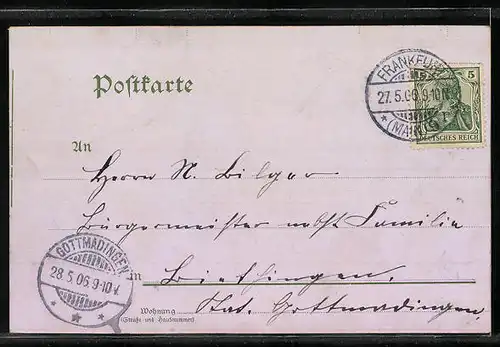 Postkarte
FRANKFURT
27.5.06.9-10N.
* (MAIN) 1 *
5
DEUTSCHES REICH
An
Herrn N. Bilger
Bürgermeister nebst Familie
in Biethingen,
Wohnung
(Straße und Hausnummer)
Stat. Gottmadingen.
GOTTMADINGEN
28.5.06.9-10V.